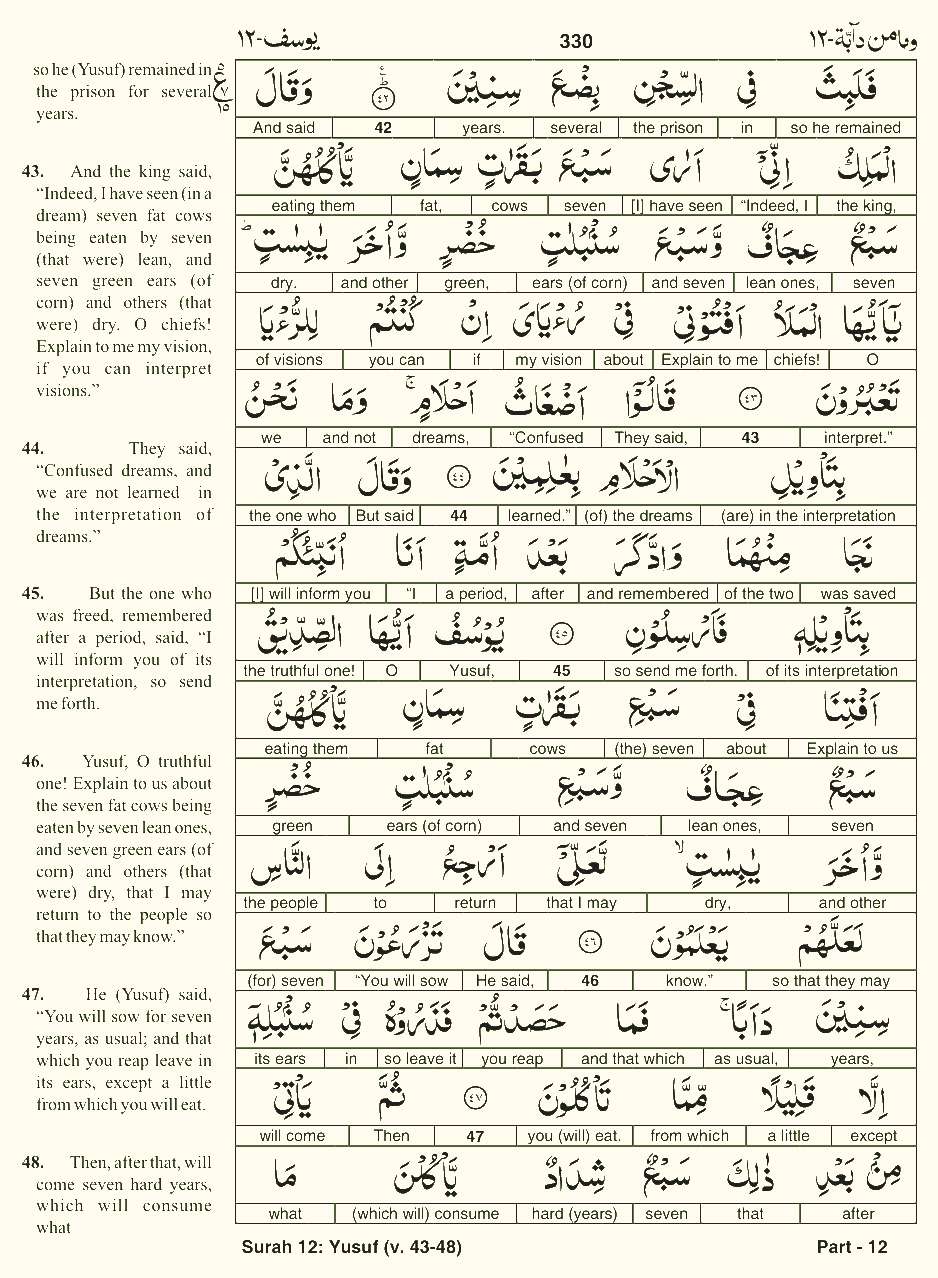 يوسف-١٢ 330 وما من دآبة-١٢
so he (Yusuf) remained in
the prison for several
years.
43. And the king said,
“Indeed, I have seen (in a
dream) seven fat cows
being eaten by seven
(that were) lean, and
seven green ears (of
corn) and others (that
were) dry. O chiefs!
Explain to me my vision,
if you can interpret
visions.”
44. They said,
“Confused dreams, and
we are not learned in
the interpretation of
dreams.”
45. But the one who
was freed, remembered
after a period, said, “I
will inform you of its
interpretation, so send
me forth.
46. Yusuf, O truthful
one! Explain to us about
the seven fat cows being
eaten by seven lean ones,
and seven green ears (of
corn) and others (that
were) dry, that I may
return to the people so
that they may know.”
47. He (Yusuf) said,
“You will sow for seven
years, as usual; and that
which you reap leave in
its ears, except a little
from which you will eat.
48. Then, after that, will
come seven hard years,
which will consume
what
ع ٧ ١٥
فَلَبِثَ فِي السِّجْنِ بِضْعَ سِنِيْنَ ٤٢ وَقَالَ
And said 42 years. several the prison in so he remained
الْمَلِكُ اِنِّيْٓ اَرٰى سَبْعَ بَقَرٰتٍ سِمَانٍ يَّاْكُلُهُنَّ
eating them fat, cows seven [I] have seen “Indeed, I the king,
سَبْعٌ عِجَافٌ وَّسَبْعَ سُنْۢبُلٰتٍ خُضْرٍ وَّاُخَرَ يٰبِسٰتٍ ؕ
dry. and other green, ears (of corn) and seven lean ones, seven
يٰٓاَيُّهَا الْمَلَاُ اَفْتُوْنِيْ فِيْ رُءْيَايَ اِنْ كُنْتُمْ لِلرُّءْيَا
of visions you can if my vision about Explain to me chiefs! O
تَعْبُرُوْنَ ٤٣ قَالُوْٓا اَضْغَاثُ اَحْلَامٍ ۚ وَمَا نَحْنُ
we and not dreams, “Confused They said, 43 interpret.”
بِتَاْوِيْلِ الْاَحْلَامِ بِعٰلِمِيْنَ ٤٤ وَقَالَ الَّذِيْ
the one who But said 44 learned.” (of) the dreams (are) in the interpretation
نَجَا مِنْهُمَا وَادَّكَرَ بَعْدَ اُمَّةٍ اَنَا اُنَبِّئُكُمْ
[I] will inform you “I a period, after and remembered of the two was saved
بِتَاْوِيْلِهٖ فَاَرْسِلُوْنِ ٤٥ يُوْسُفُ اَيُّهَا الصِّدِّيْقُ
the truthful one! O Yusuf, 45 so send me forth. of its interpretation
اَفْتِنَا فِيْ سَبْعِ بَقَرٰتٍ سِمَانٍ يَّاْكُلُهُنَّ
eating them fat cows (the) seven about Explain to us
سَبْعٌ عِجَافٌ وَّسَبْعِ سُنْۢبُلٰتٍ خُضْرٍ
green ears (of corn) and seven lean ones, seven
وَّاُخَرَ يٰبِسٰتٍ ۙ لَّعَلِّيْٓ اَرْجِعُ اِلَى النَّاسِ
the people to return that I may dry, and other
لَعَلَّهُمْ يَعْلَمُوْنَ ٤٦ قَالَ تَزْرَعُوْنَ سَبْعَ
(for) seven “You will sow He said, 46 know.” so that they may
سِنِيْنَ دَاَبًا ۚ فَمَا حَصَدْتُّمْ فَذَرُوْهُ فِيْ سُنْۢبُلِهٖٓ
its ears in so leave it you reap and that which as usual, years,
اِلَّا قَلِيْلًا مِّمَّا تَاْكُلُوْنَ ٤٧ ثُمَّ يَاْتِيْ
will come Then 47 you (will) eat. from which a little except
مِنْۢ بَعْدِ ذٰلِكَ سَبْعٌ شِدَادٌ يَّاْكُلْنَ مَا
what (which will) consume hard (years) seven that after
Surah 12: Yusuf (v. 43-48) Part - 12